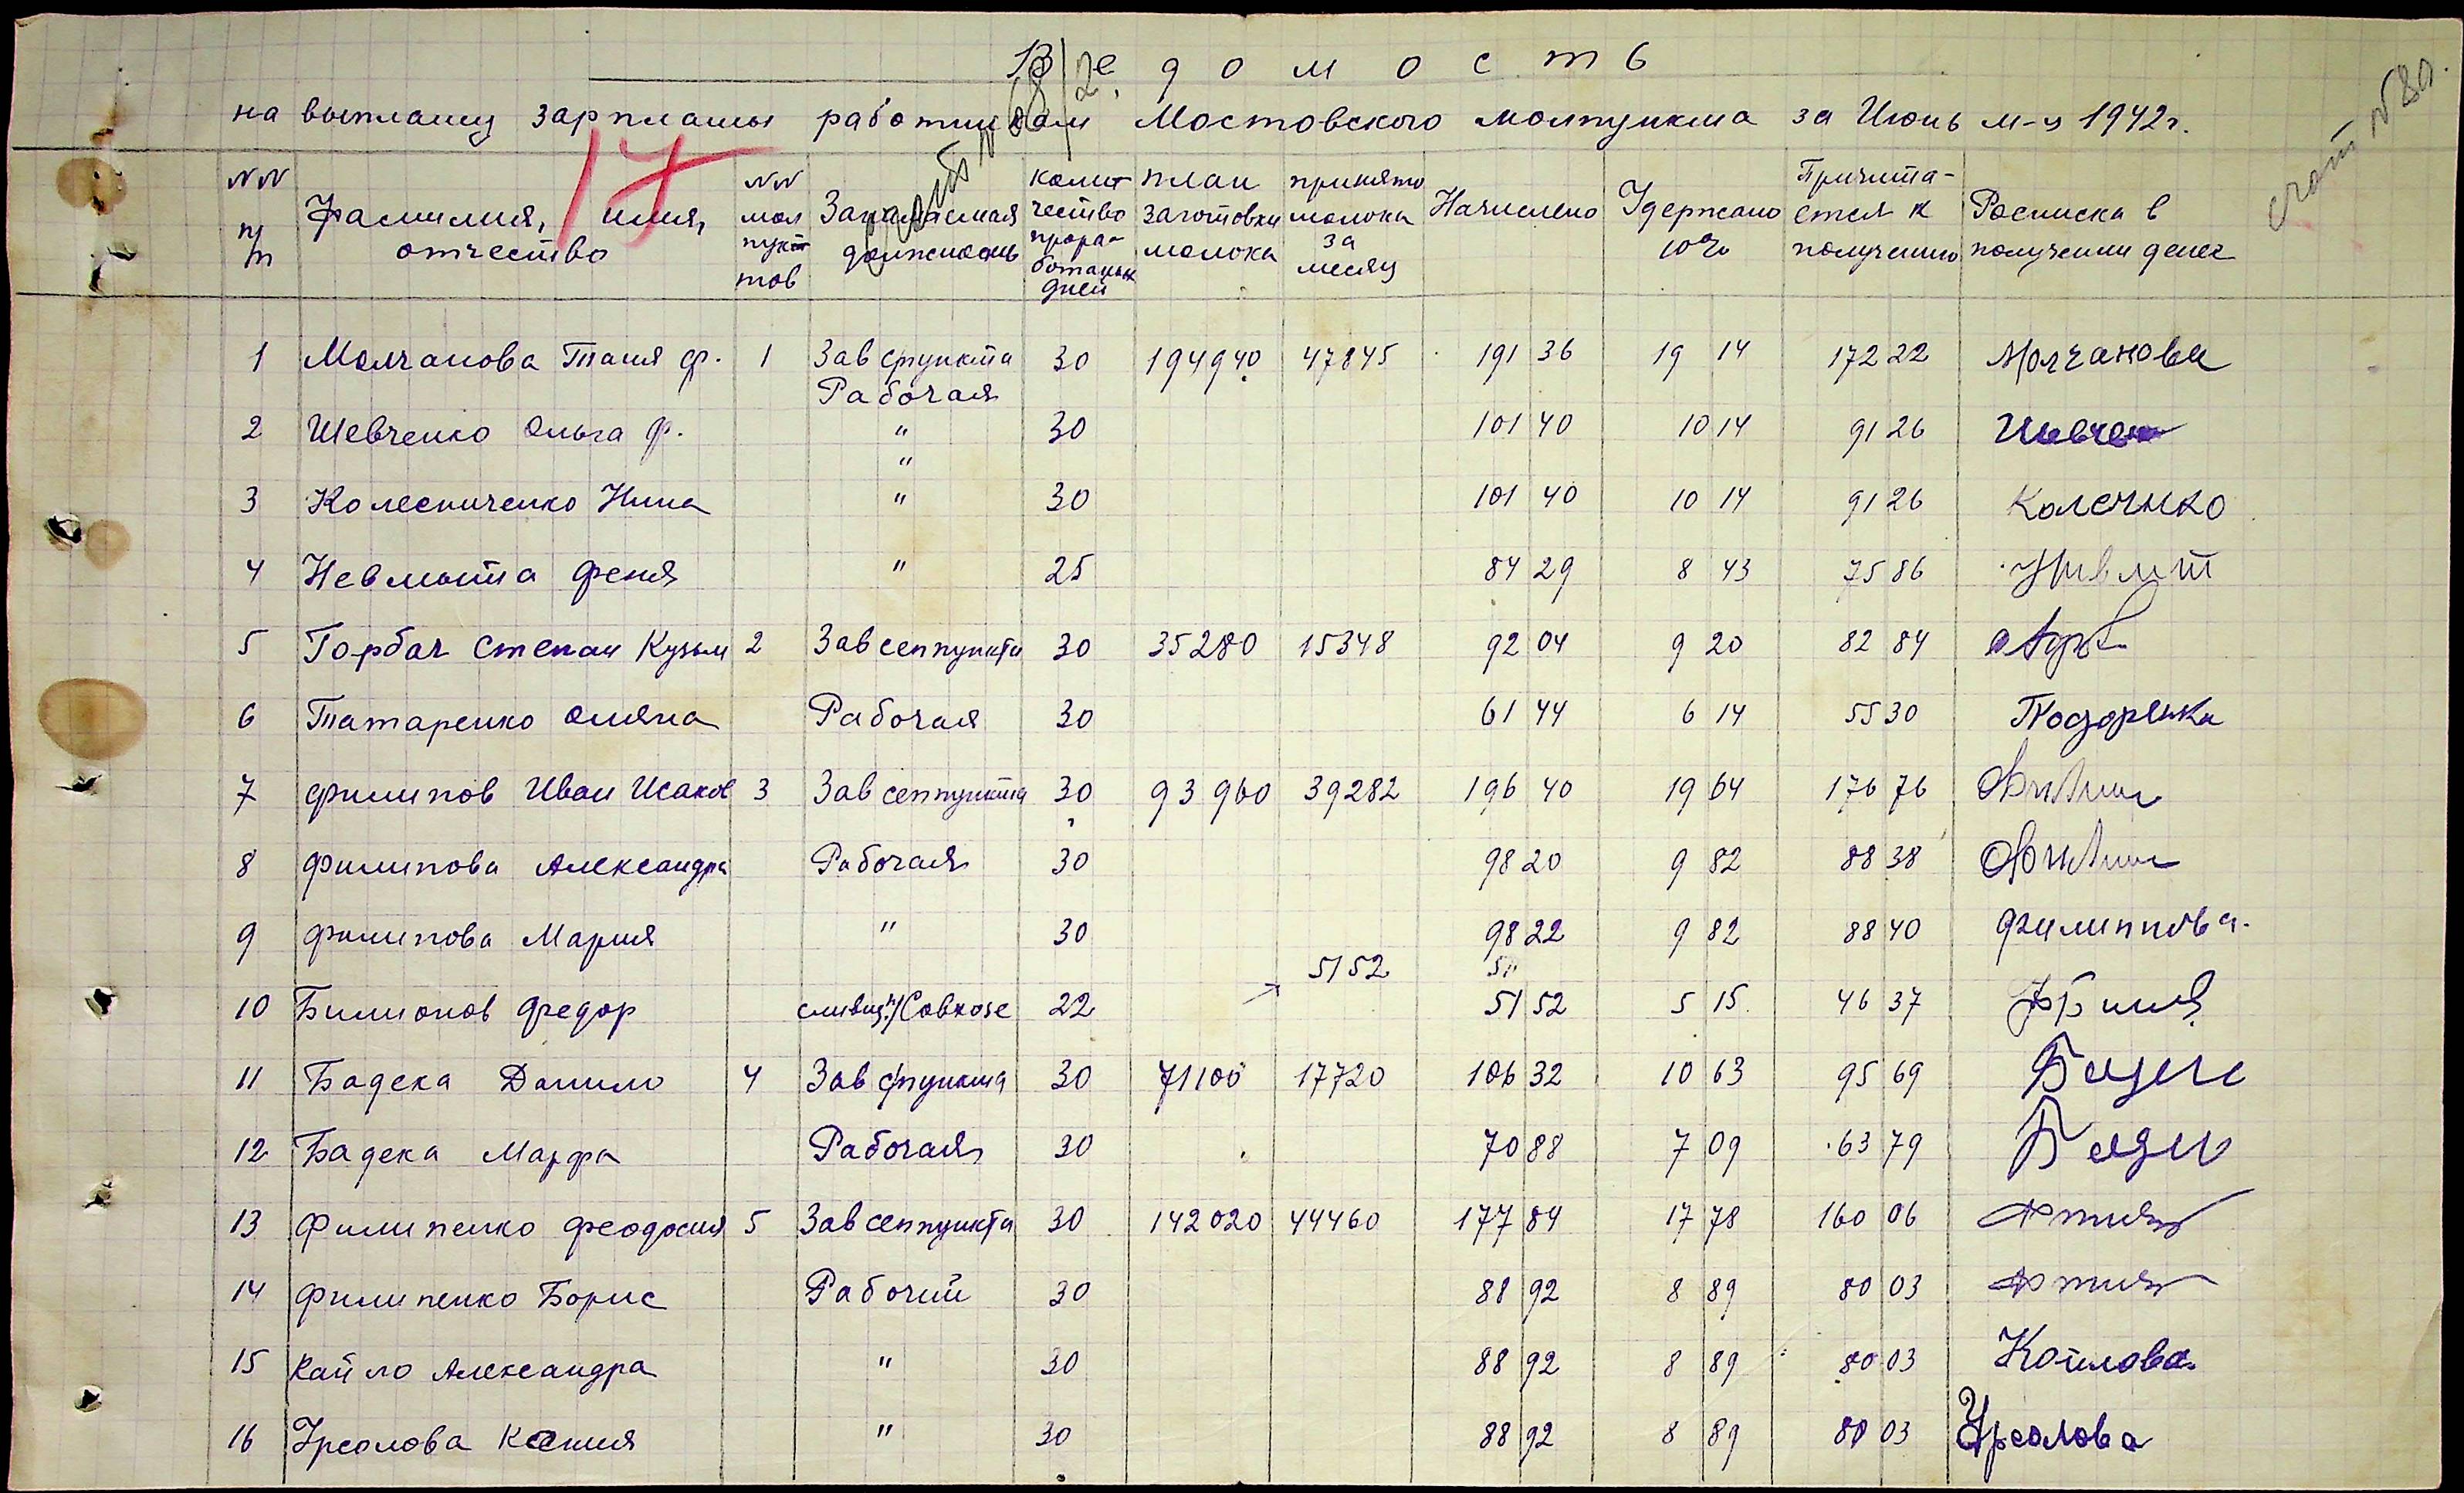 Ведомость
на выплату зарплаты работникам Мостовского молпункта за Июнь м-ц 1942г.
счот №80.
17
68/2
NN п/п Фамилия, имя, отчество NN мол пунктов Занимаемая должность Количество проработаных дней план заготовки молока принято молока за месяц Начислено Удержано 10% Причитается к получению Росписка в получении денег
1 Молчанова Таня Ф. 1 Зав с/пункта 30 194940 47845 191 36 19 14 172 22 Молчанова
Рабочая
2 Шевченко Ольга Ф. " 30 101 40 10 14 91 26 Шевчен
"
3 Колесниченко Нина " 30 101 40 10 14 91 26
4 Невмыта Феня " 25 84 29 8 43 75 86
5 Горбач Степан Кузьм 2 Зав сеппункта 30 35280 15348 92 04 9 20 82 84
6 Татаренко Оляна Рабочая 30 61 44 6 14 55 30
7 Филипов Иван Исаков 3 Зав сеппункта 30 93960 39282 196 40 19 64 176 76
8 Филипова Александра Рабочая 30 98 20 9 82 88 38
9 Филипова Мария " 30 98 22 9 82 88 40 Филиппова.
5152 51
10 Билионов Федор сливщ./Совхозе 22 51 52 5 15 46 37
11 Бадека Данило 4 Зав с/пункта 30 71100 17720 106 32 10 63 95 69
12 Бадека Марфа Рабочая 30 70 88 7 09 63 79
13 Филипенко Феодосия 5 Зав сеппункта 30 142020 44460 177 84 17 78 160 06
14 Филипенко Борис Рабочий 30 88 92 8 89 80 03
15 Кайло Александра " 30 88 92 8 89 80 03 Койлова
16 Уреолова Ксения " 30 88 92 8 89 80 03 Уреолова